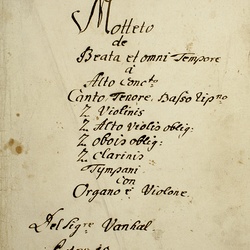 Motteto
de
Beata et omni Tempore
à
Alto Conc:to
Canto, Tenore, Basso Rip:no
2. Violinis
2. Alto Violis oblig:
2. Obois oblig:
2. Clarinis
Tympani
con
Organo e Violone
Del Sigre Vanhal